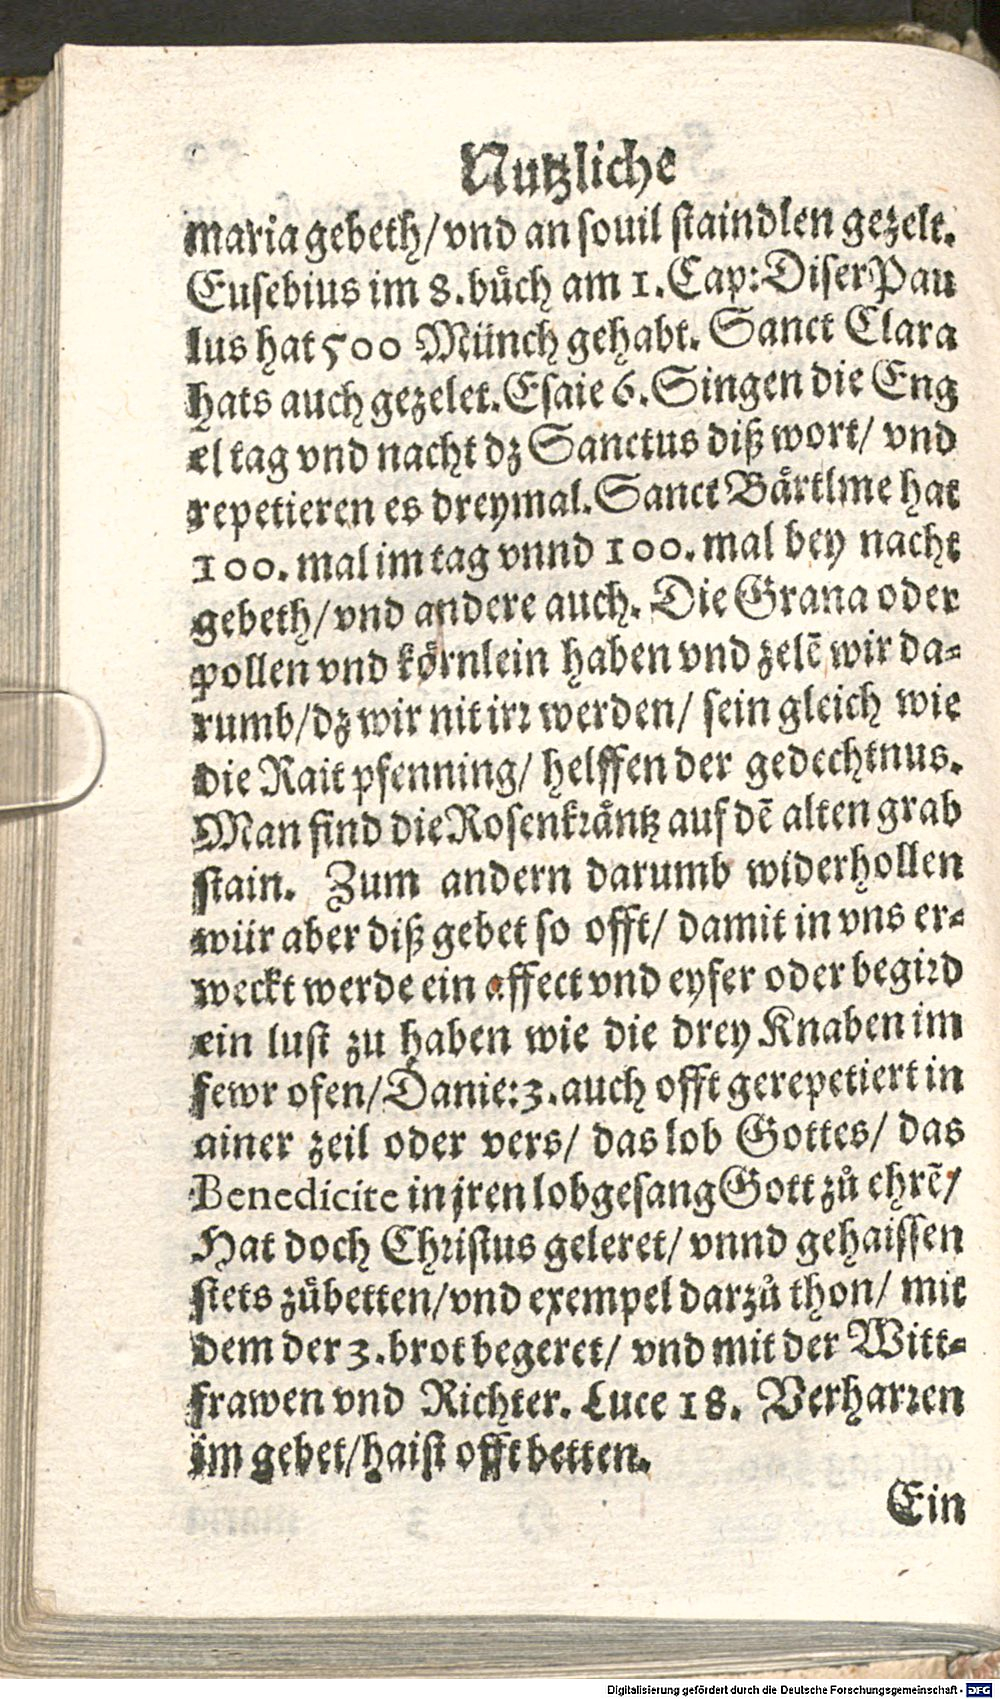 Nutzliche
maria gebeth/ vnd an souil staindlen gezelt.
Eusebius im 8. bůch am 1. Cap: Diser Pau
lus hat 500 Münch gehabt. Sanct Clara
hats auch gezelet. Esaie 6. Singen die Eng
el tag vnd nacht dz Sanctus diß wort/ vnd
repetieren es dreymal. Sanct Bärtlme hat
100. mal im tag vnnd 100. mal bey nacht
gebeth/ vnd andere auch. Die Grana oder
pollen vnd körnlein haben vnd zelē wir da-
rumb/ dz wir nit irr werden/ sein gleich wie
die Rait pfenning/ helffen der gedechtnus.
Man find die Rosenkräntz auf dē alten grab
stain. Zum andern darumb widerhollen
wür aber diß gebet so offt/ damit in vns er-
weckt werde ein affect vnd eyfer oder begird
ein lust zu haben wie die drey Knaben im
fewr ofen/ Danie: 3. auch offt gerepetiert in
ainer zeil oder vers/ das lob Gottes/ das
Benedicite in jren lobgesang Gott zů ehrē/
Hat doch Christus geleret/ vnnd gehaissen
stets zůbetten/ vnd exempel darzů thon/ mit
dem der 3. brot begeret/ vnd mit der Witt-
frawen vnd Richter. Luce 18. Verharren
im gebet/ haist offt betten.
Ein
Digitalisierung gefördert durch die Deutsche Forschungsgemeinschaft - DFG